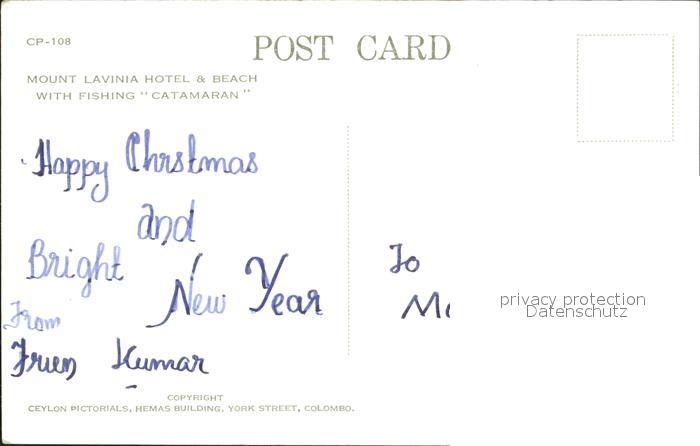 CP-108
POST CARD
MOUNT LAVINIA HOTEL & BEACH
WITH FISHING "CATAMARAN"
Happy Chrstmas
and
Bright New Year
From
Frien Kumar
To
privacy protection
Datenschutz
COPYRIGHT
CEYLON PICTORIALS, HEMAS BUILDING, YORK STREET, COLOMBO.